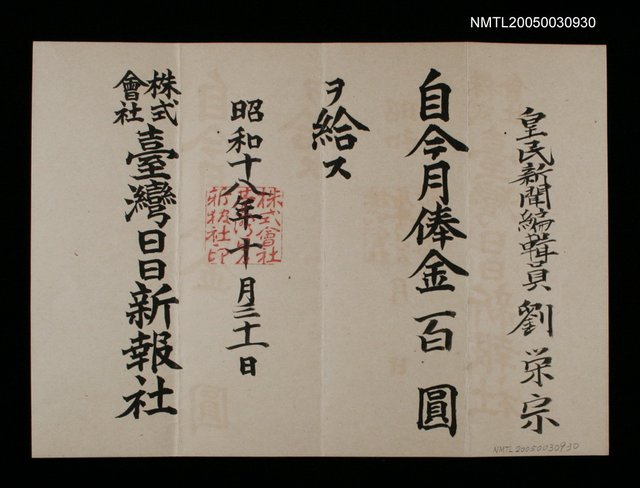 NMTL20050030930
皇民新聞編輯員 劉栄宗
自今月俸金一百圓
ヲ給ス
昭和十八年十月三十一日
株式會社
新報社印
株式會社臺灣日日新報社
NMTL20050030930